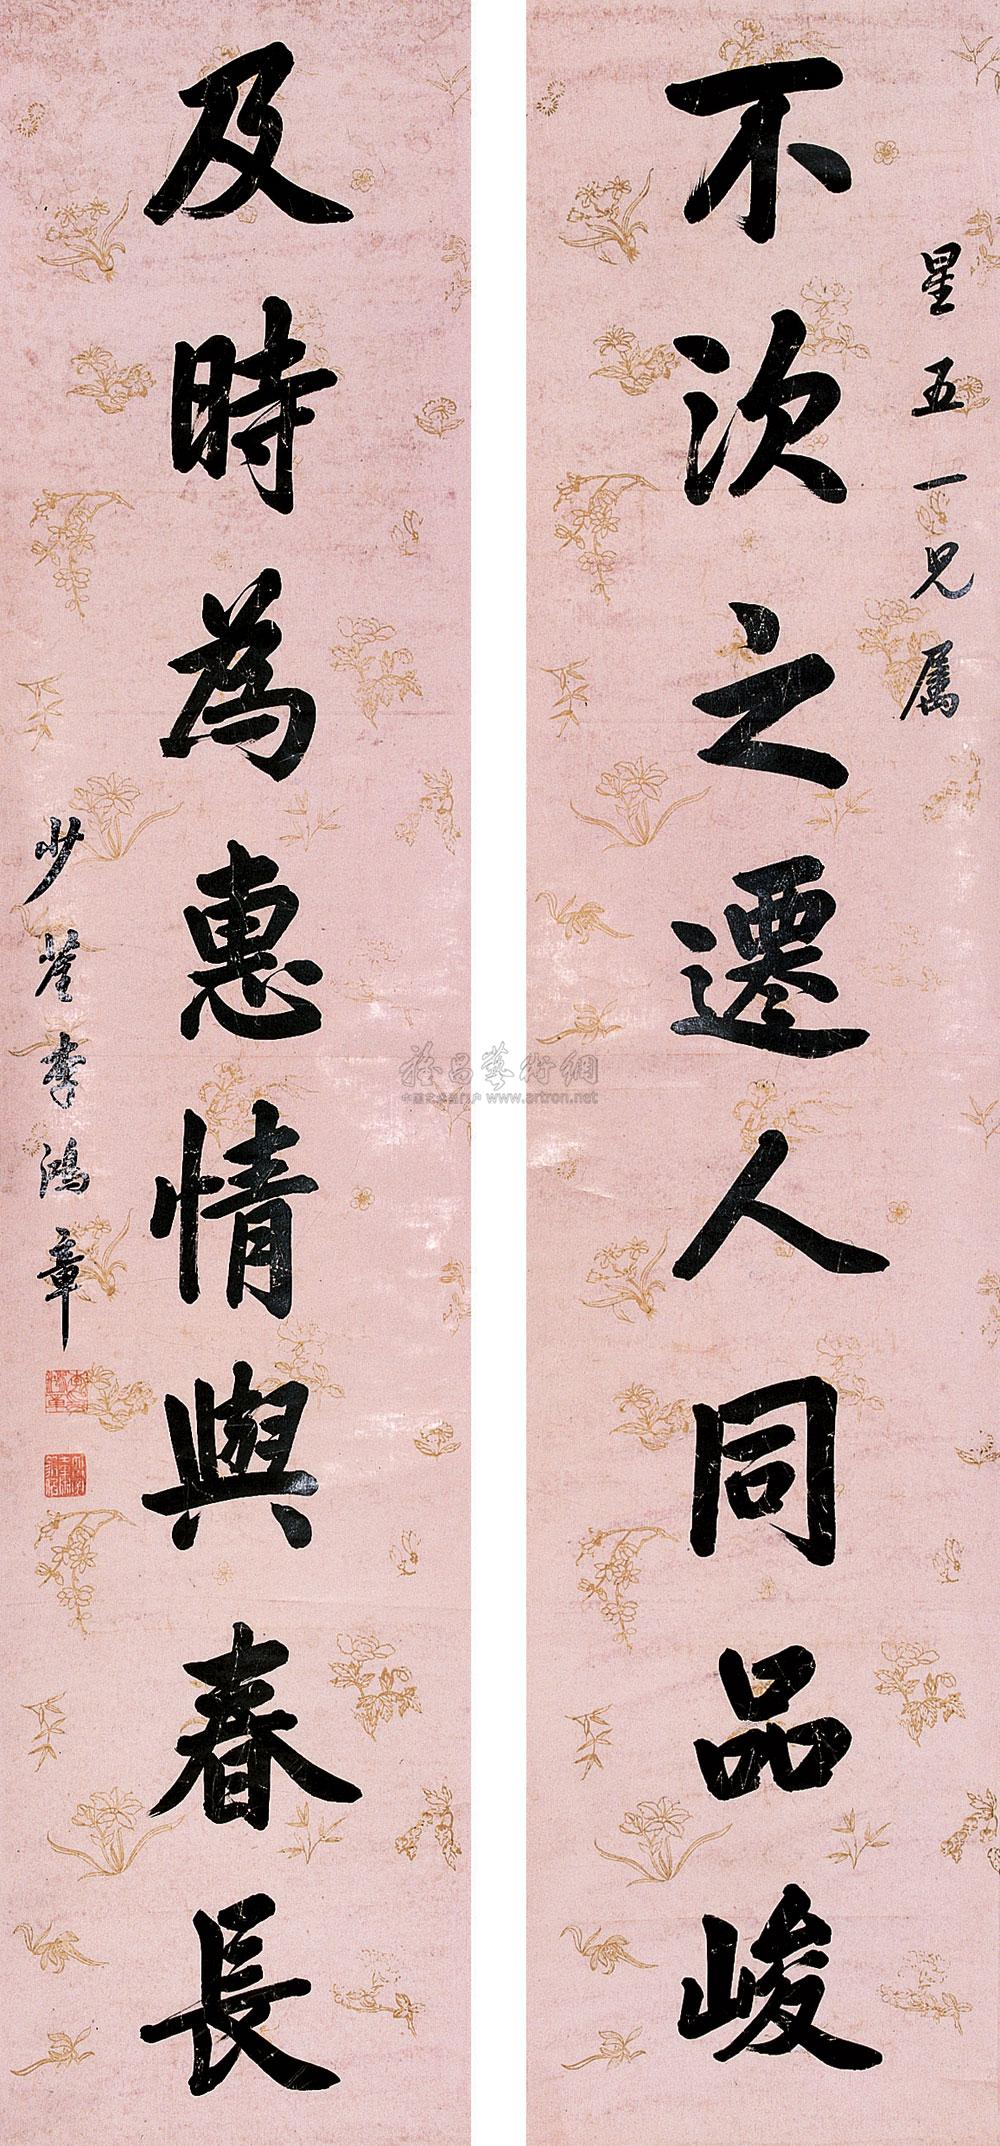 星五一兄属
不次之遷人同品峻
及時為惠情與春長
少荃李鴻章
雅昌藝術網
中国艺术品门户 www.artron.net